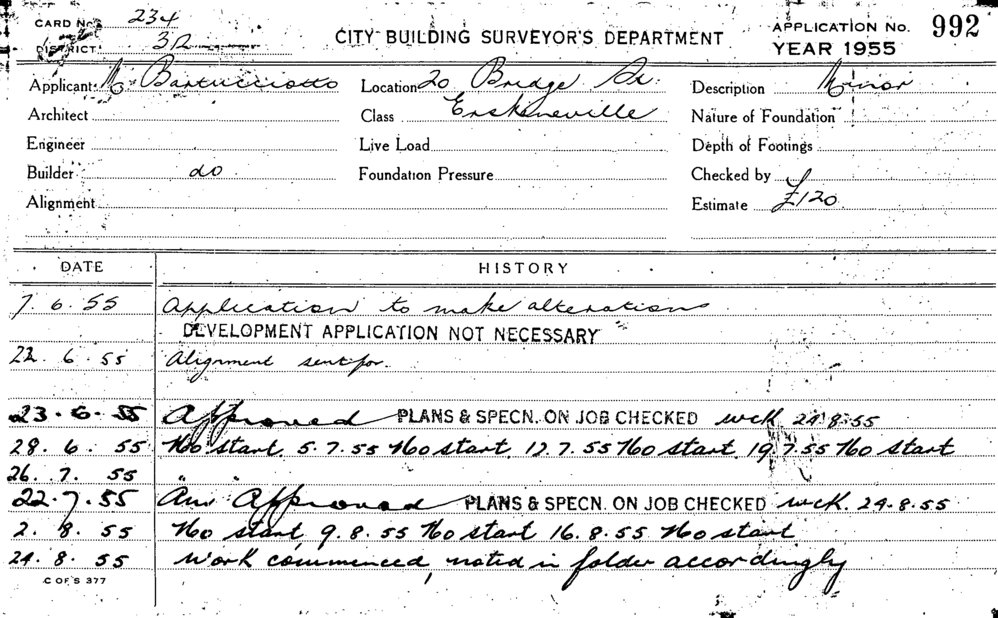 CARD No. 234
DISTRICT 3D
CITY BUILDING SURVEYOR'S DEPARTMENT
APPLICATION No. 992
YEAR 1955
Applicant M. Bartucciotto Location 20 Bridge St. Description Minor
Architect Class Erskineville Nature of Foundation
Engineer Live Load Depth of Footings
Builder do Foundation Pressure Checked by
Alignment Estimate £120
DATE HISTORY
7. 6. 55 Application to make alterations
DEVELOPMENT APPLICATION NOT NECESSARY
22. 6. 55 Alignment sent for.
23. 6. 55 Approved PLANS & SPECN. ON JOB CHECKED wck 24.8.55
28. 6. 55 No start. 5.7.55 No start. 12.7.55 No start. 19.7.55 No start
26. 7. 55 " "
22.7.55 Am Approved PLANS & SPECN. ON JOB CHECKED wck. 24.8.55
2. 8. 55 No start 9.8.55 No start 16.8.55 No start
24. 8. 55 Work commenced, noted in folder accordingly
C OF S 377